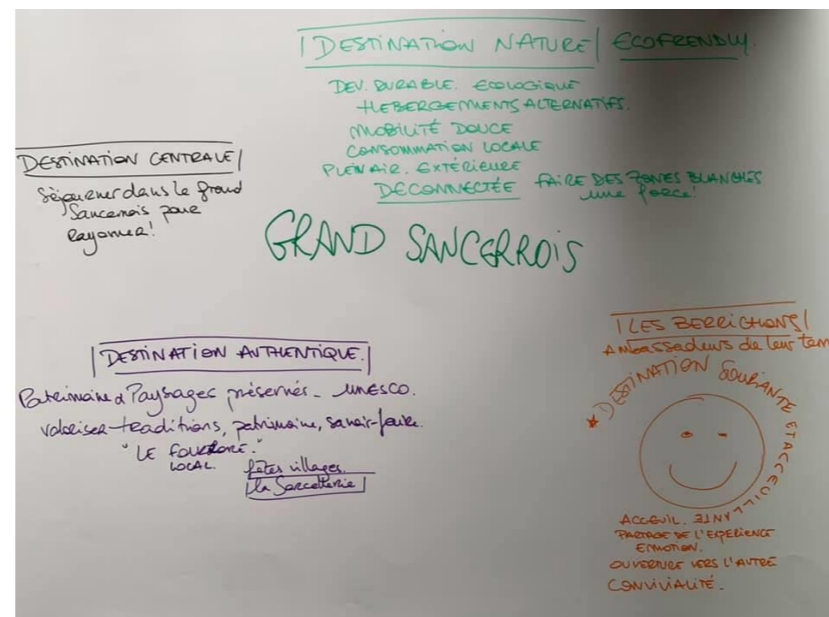 DESTINATION NATURE ECOFRENDLY.
DEV. DURABLE. ECOLOGIQUE
HEBERGEMENTS ALTERNATIFS.
MOBILITÉ DOUCE
CONSOMMATION LOCALE
PLEIN AIR. EXTÉRIEURE
DECONNECTÉE FAIRE DES ZONES BLANCHES
une force!
DESTINATION CENTRALE
Séjourner dans le grand
Sancerrois pour
Rayonner!
GRAND SANCERROIS
DESTINATION AUTHENTIQUE.
Patrimoine & Paysages préservés - UNESCO.
Valoriser traditions, patrimoine, savoir-faire.
"LE FOLKLORE."
LOCAL.
fêtes villages.
la Sorcellerie
LES BERRICHONS
Ambassadeurs de leur
DESTINATION SOURIANTE ET ACCEUILLANTE
ACCEUIL.
PARTAGE DE L'EXPERIENCE
EMOTION.
OUVERTURE VERS L'AUTRE
CONVIVIALITÉ.